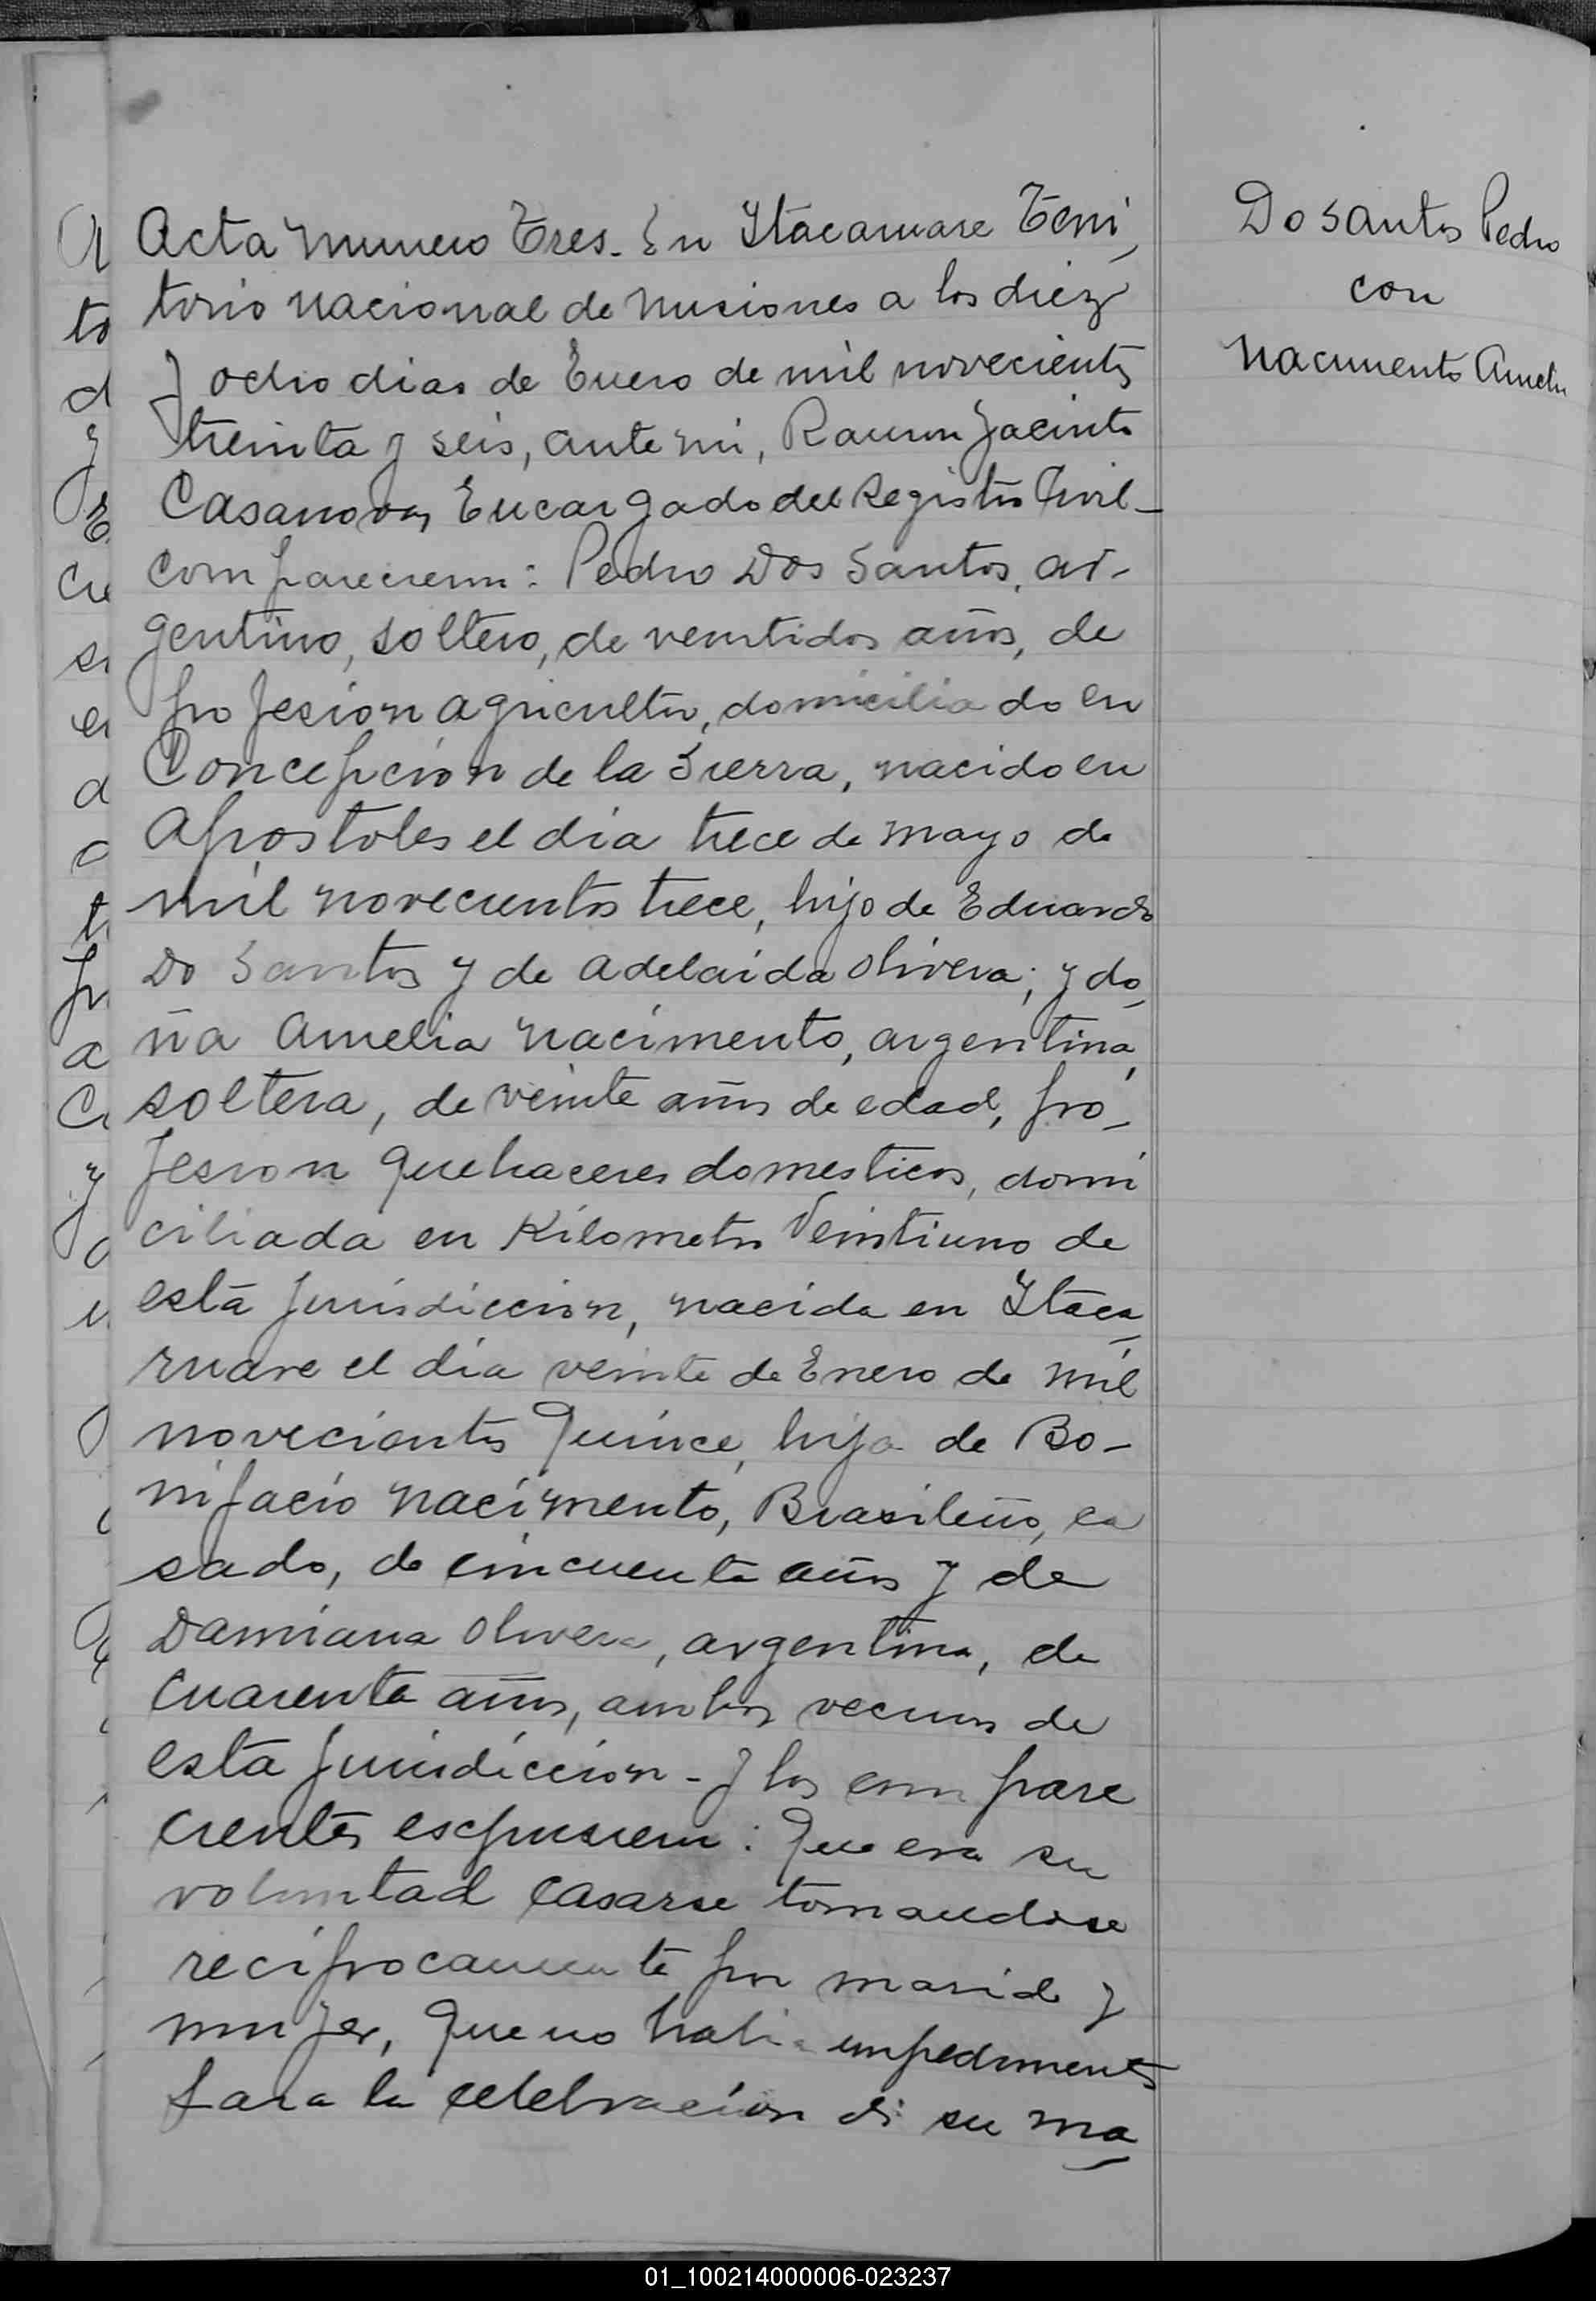 Acta numero Tres. En Itacaruare Terri,
torio nacional de Misiones a los diez
y ocho dias de Enero de mil novecientos
treinta y seis, ante mi, Ramon Jacinto
Casanova, Encargado del Registro Civil_
comparecieron: Pedro Dos Santos, ar-
gentino, soltero, de veintidos años, de
profesion agricultor, domiciliado en
Concepción de la Sierra, nacido en
Apostoles el dia trece de mayo de
mil novecientos trece, hijo de Eduardo
Do Santos y de Adelaida Olivera; y do,
ña Amelia Nacimento, argentina,
soltera, de veinte años de edad, pro_
fesion quehaceres domesticos, domi
ciliada en Kilometro Veintiuno de
esta jurisdiccion, nacida en Itaca_
ruare el dia veinte de Enero de mil
novecientos quince, hija de Bo-
nifacio Nacimento, Brasileño, ca
sado, de cincuenta años y de
Damiana Olivera, argentina, de
cuarenta años, ambos vecinos de
esta jurisdiccion - y los compare
cientes escpusieron: que era su
voluntad casarse tomandose
reciprocamente por marido y
mujer, que no habia impedimento
para la celebracion de su ma_
Do Santos Pedro
con
Nacimento Amelia
01_100214000006-023237